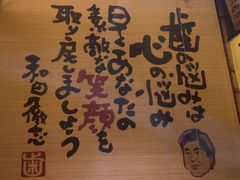 歯の悩みは
心の悩み
早くあなたの
素敵な笑顔を
取り戻しましょう
和田